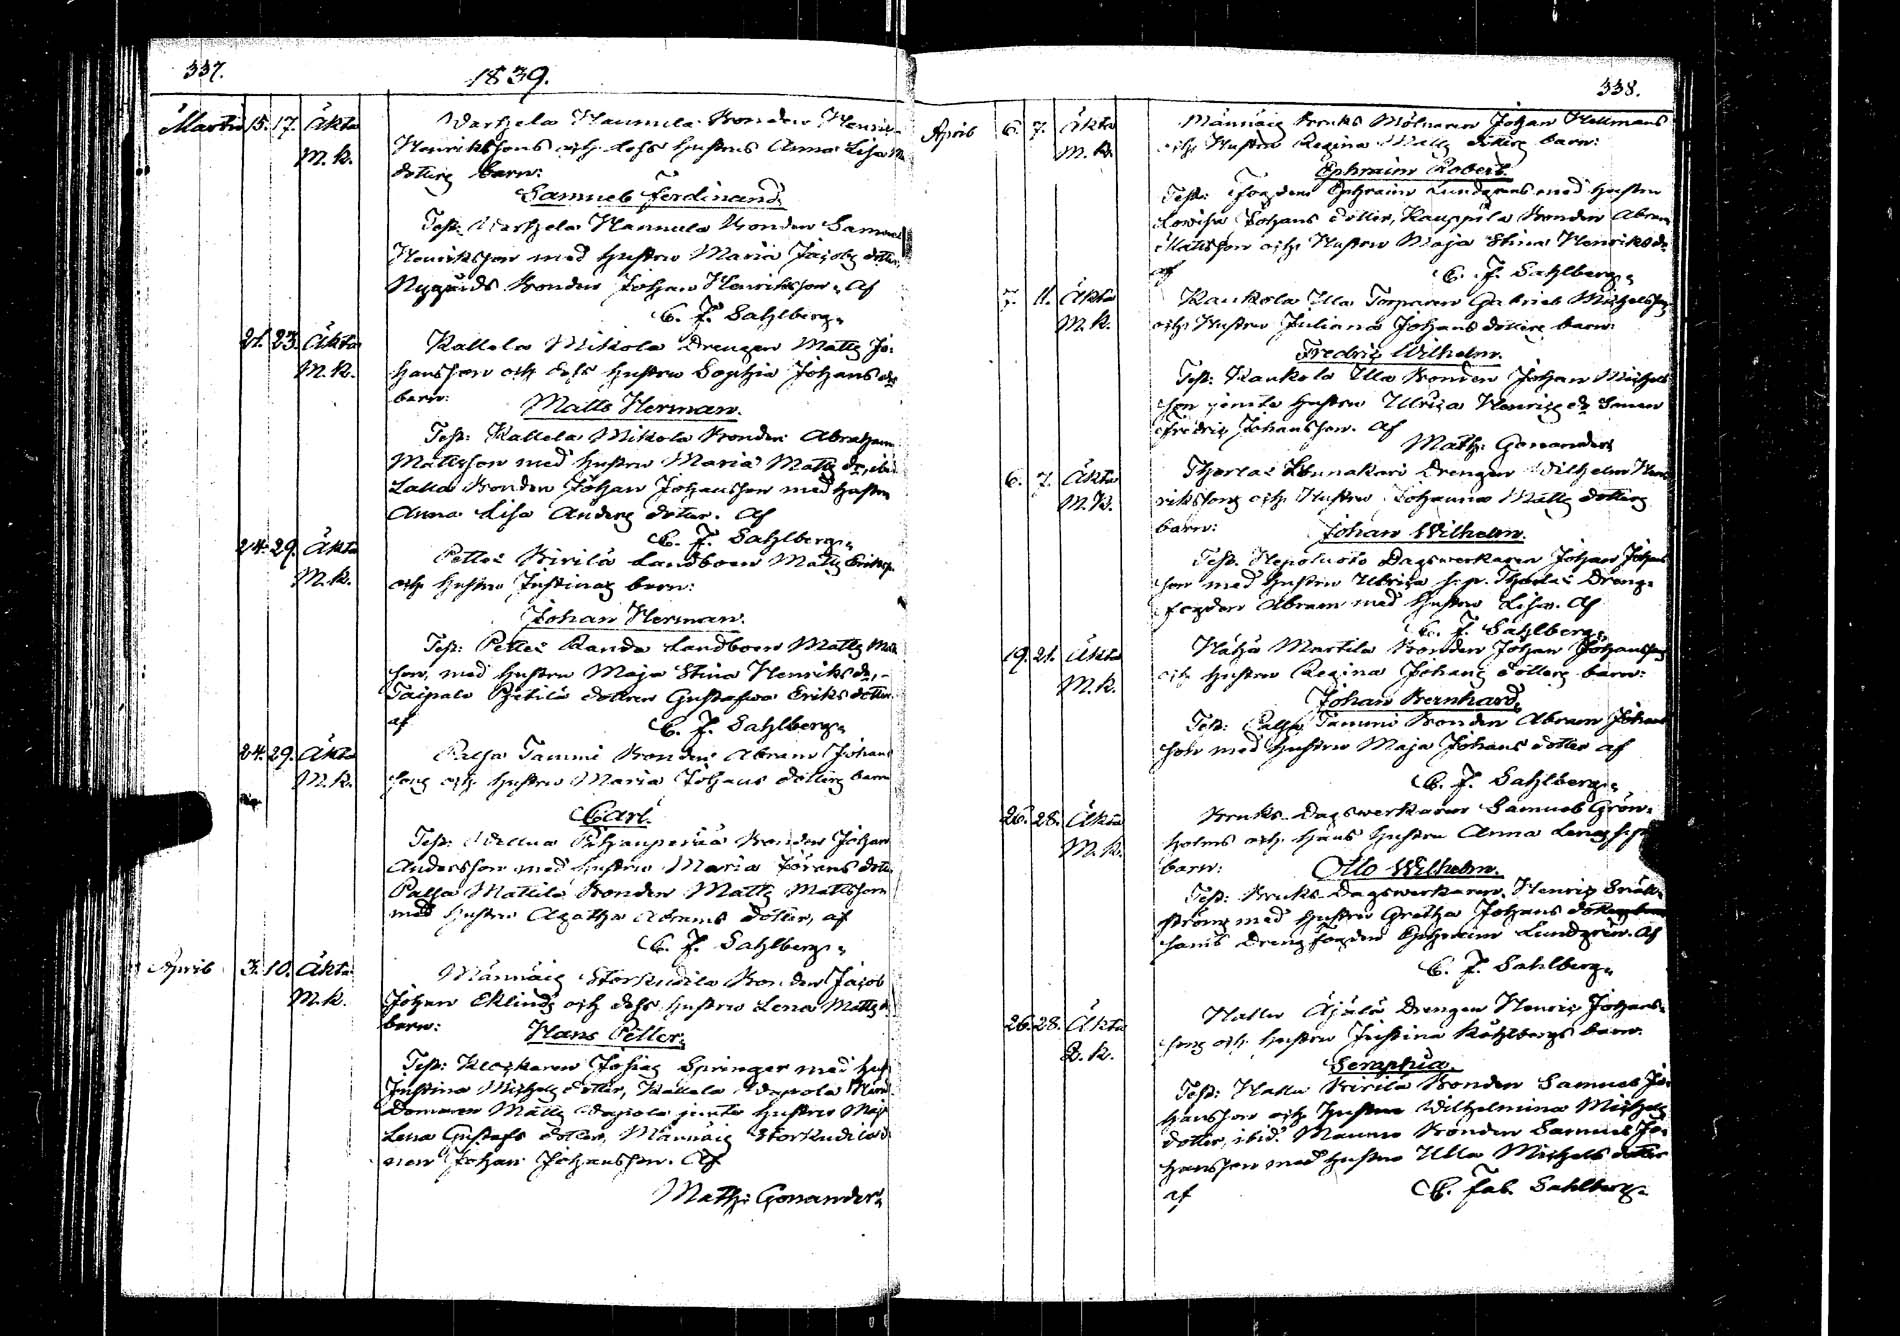 337.
1839.
Martii 15. 17. Äkta
M. K.
Wartzela Hannula Bonden Henric
Henrikssons och dess hustrus Anna Lisa
doters barn:
Samuel Ferdinand.
Test: Wartzela Hannula Bonden Samuel
Henriksson med hustru Maria Jacobs dotter,
Nygårds Bonden Johan Henriksson. Af
C. F. Sahlberg.
21. 23. Äkta
M. K.
Kallela Mikola Drengen Matts Jo-
hansson och dess hustru Sophia Johans dr
barn:
Matts Herman.
Test: Kallela Mikola Bonden Abraham
Mattsson med hustru Maria Matts dr, ibid.
Lalla Bonden Johan Johansson med hustru
Anna Lisa Anders dotter. Af
C. F. Sahlberg.
24. 29. Äkta
M. K.
Pettes Kirilä Landboen Matts
och hustru Justinas barn:
Johan Herman.
Test: Pettes Randa Landboen Matts Matts
son, med hustru Maja Stina Henriks dr,
Taipale Pietilä dottren Gustafwa Eriks dotter
af
C. F. Sahlberg.
24. 29. Äkta
M. K.
Palja Tammi Bonden Abram Johans
sons och hustru Maria Johans dotters barn
Carl.
Test: Bonden Johan
Andersson med hustru Maria Görans dotter
Palja Mattila Bonden Matts Mattsson
med hustru Agatha Abrams dotter, af
C. F. Sahlberg.
April 3. 10. Äkta
M. K.
Männäis Storkudila Bonden Jacob
Johan Eklunds och dess hustru Lena Matts dr
barn:
Hans Petter.
Test: Klockaren Josias Springer med hust
Justina Michels dotter, Kallela Wapola Nämd
Domaren Matts Wapola jemte hustru Maja
Lena Gustafs dotter, Männäis Storkudila
Johan Johansson. Af
Math: Gonander.
338.
April 6. 7. Äkta
M. K.
Männäis Bruks Mölnaren Johan Hellmans
och Hustru Regina Matts dotters barn:
Ephraim Robert.
Test: Fogden Ephraim Lundgrens med hustru
Lowisa Johans dotter, Kauppila Bonden Abram
Mattsson och Hustru Maja Stina Henriks dr
af
C. F. Sahlberg.
7. 11. Äkta
M. K.
Kaukola Ylla Torparen Gabriel Michelsson
och Hustru Juliana Johans dotters barn:
Fredric Wilhelm.
Test: Kaukola Ylla Bonden Johan Michels
son jemte hustru Ulrica Henrics dr sonen
Fredric Johansson. Af
Math: Gonander
6. 7. Äkta
M. K.
Tharlas Lonnakari Drengen Wilhelm Hen
rikssons och Hustru Johanna Matts dotters
barn:
Johan Wilhelm.
Test. Hepoluoto Dagswerkaren Johan Johans
son med hustru Ulrica s. p. Tharlas Dreng-
fogden Abram med hustru Lisa. Af
C. F. Sahlberg.
19. 21. Äkta
M. K.
Hähjä Martila Bonden Johan Johanssons
och hustru Regina Johans dotters barn:
Johan Bernhard.
Test: Palja Tammi Bonden Abram Johans
son med hustru Maja Johans dotter af
C. F. Sahlberg.
26. 28. Äkta
M. K.
Bruks Dagswerkaren Samuel Grön-
holms och hans hustru Anna Lenas
barn:
Otto Wilhelm.
Test: Bruks Dagswerkaren Henric
ström med hustru Gretha Johans dotter
samt Dreng fogden Ephraim Lundgren. Af
C. F. Sahlberg.
26. 28. Äkta
Q. K.
Hallu Äjälä Drengen Henric Johans-
sons och hustru Justina Kohlbergs barn.
Seraphia.
Test: Hallu Kirilä Bonden Samuel Jo-
hansson och hustru Wilhelmina Michels
dotter, ibid. Mannu Bonden Samuel Jo-
hansson med hustru Ulla Michels dotter
af
C. Fab. Sahlberg.